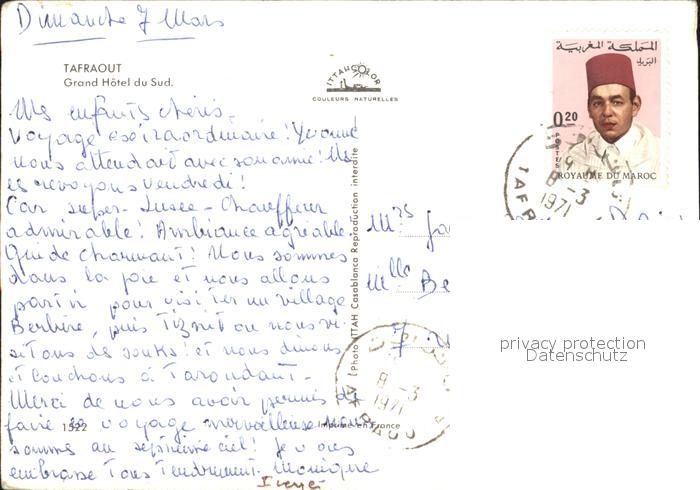 Dimanche 7 Mars
TAFRAOUT
Grand Hôtel du Sud.
ITTAHCOLOR
COULEURS NATURELLES
المملكة المغربية
البريد
0.20
POSTES
ROYAUME DU MAROC
8-3
1971
TAFRAOUT
Mes enfants chéris-
Voyage extraordinaire! Yvonne
nous attendait avec son amie! Ns
les revoyons vendredi!
Car super-luxe- Chauffeur
admirable! Ambiance agréable.
Guide charmant! Nous sommes
dans la joie et nous allons
partir pour visiter un village
Berbère, puis Tiznit ou nous vi-
sitons des souks! et nous dînons
et couchons à Taroudant-
Merci de nous avoir permis de
faire ce voyage merveilleux nous
sommes au septième ciel! Je vs
embrasse tous tendrement. Monique
1522
Imprimé en France
(Photo ITTAH Casablanca Reproduction interdite
Mrs
Mlle Be
7
8-3
1971
TAFRAOUT
privacy protection
Datenschutz